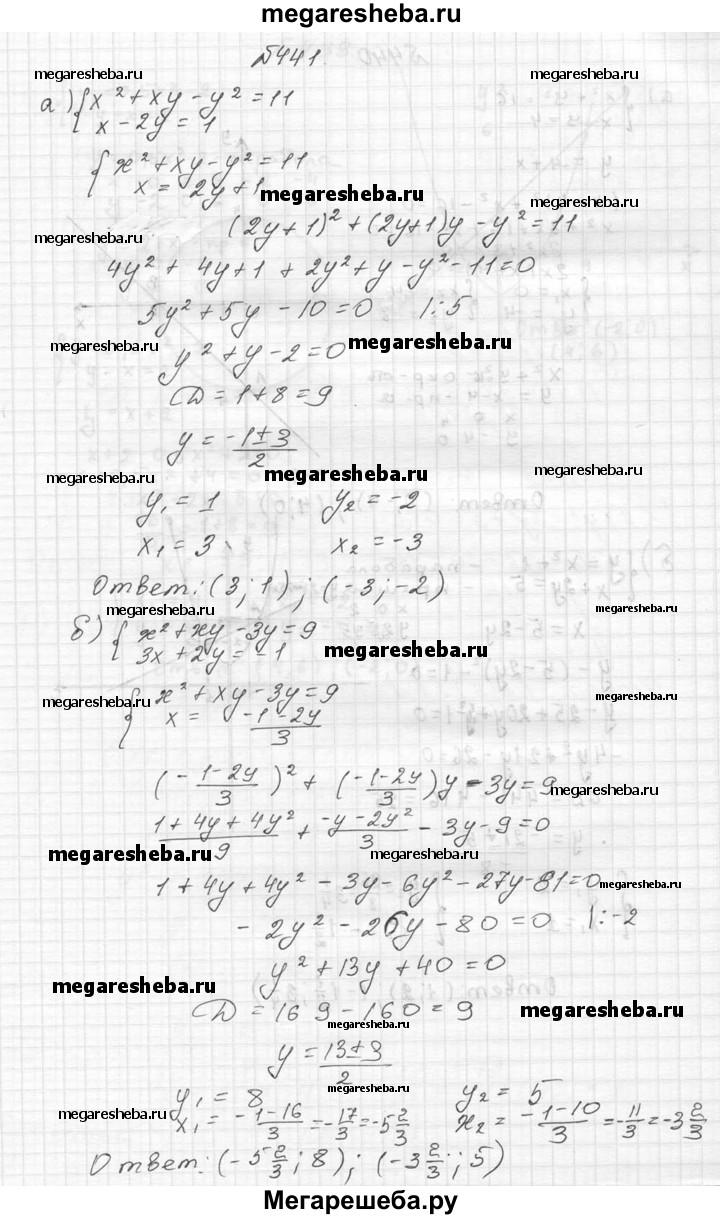 megaresheba.ru
№441.
megaresheba.ru megaresheba.ru
а) { x² + xy - y² = 11
x - 2y = 1
{ x² + xy - y² = 11
x = 2y + 1
megaresheba.ru megaresheba.ru
(2y+1)² + (2y+1)y - y² = 11
megaresheba.ru
4y² + 4y + 1 + 2y² + y - y² - 11 = 0
5y² + 5y - 10 = 0 |:5
megaresheba.ru megaresheba.ru
y² + y - 2 = 0
D = 1 + 8 = 9
y = (-1 ± 3)/2
megaresheba.ru megaresheba.ru megaresheba.ru
y₁ = 1 y₂ = -2
x₁ = 3 x₂ = -3
Ответ: (3; 1); (-3; -2)
megaresheba.ru megaresheba.ru
б) { x² + xy - 3y = 9
3x + 2y = -1
megaresheba.ru
{ x² + xy - 3y = 9
x = (-1 - 2y)/3
megaresheba.ru
(- (1-2y)/3)² + (-1-2y)/3)y - 3y = 9
megaresheba.ru
(1 + 4y + 4y²)/9 + (-y - 2y²)/3 - 3y - 9 = 0
megaresheba.ru megaresheba.ru
1 + 4y + 4y² - 3y - 6y² - 27y - 81 = 0
megaresheba.ru
- 2y² - 26y - 80 = 0 |:-2
y² + 13y + 40 = 0
megaresheba.ru
D = 169 - 160 = 9
megaresheba.ru megaresheba.ru
y = (13 ± 3)/2
megaresheba.ru
y₁ = 8 y₂ = 5
x₁ = -(1-16)/3 = -17/3 = -5 2/3 x₂ = -(1-10)/3 = -11/3 = -3 2/3
megaresheba.ru megaresheba.ru
Ответ: (-5 2/3; 8); (-3 2/3; 5)
megaresheba.ru
Мегарешеба.ру